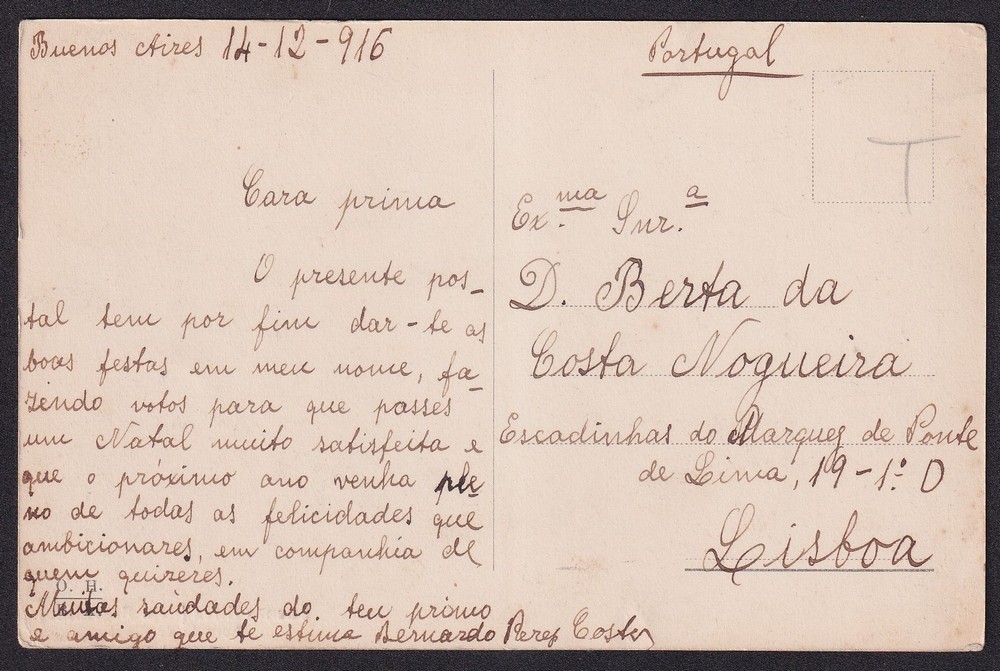 Buenos Aires 14-12-916
Cara prima
O presente pos-
tal tem por fim dar-te as
boas festas em meu nome, fa-
zendo votos para que passes
um Natal muito satisfeita e
que o próximo ano venha ple-
no de todas as felicidades que
ambicionares, em companhia de
quem quizeres.
O. H.
Muitas saúdades do teu primo
e amigo que te estima Bernardo Perez Costa
Portugal
T
Ex.ma Snr.a
D. Berta da
Costa Nogueira
Escadinhas do Marquez de Ponte
de Lima, 19-1º D
Lisboa